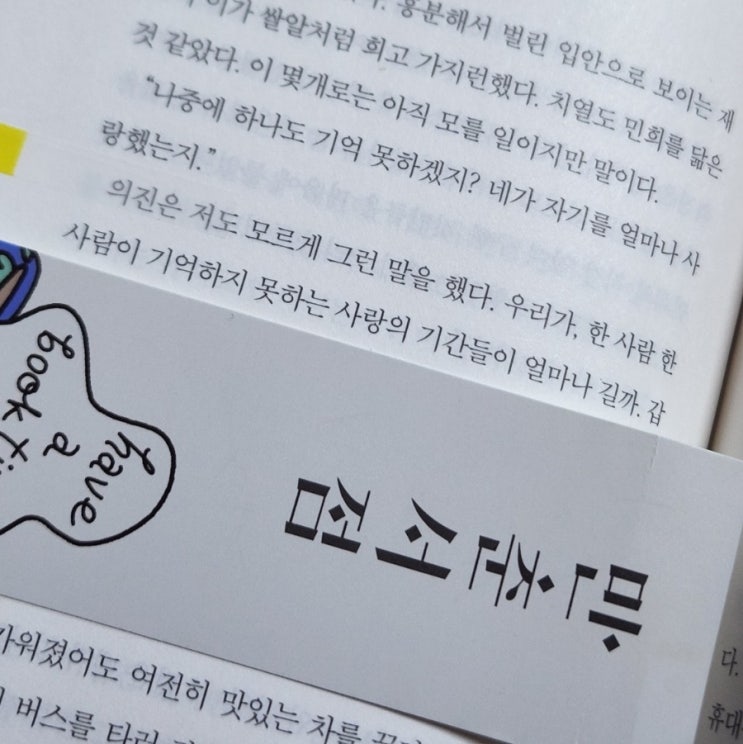 흥분해서 벌린 입안으로 보이는 재
이가 쌀알처럼 희고 가지런했다. 치열도 민희를 닮은
것 같았다. 이 몇개로는 아직 모를 일이지만 말이다.
“나중에 하나도 기억 못하겠지? 네가 자기를 얼마나 사
랑했는지.”
의진은 저도 모르게 그런 말을 했다. 우리가, 한 사람 한
사람이 기억하지 못하는 사랑의 기간들이 얼마나 길까. 갑
have
a
book
만춘서점
가워졌어도 여전히 맛있는 차를
버스를 타러
다.
휴대